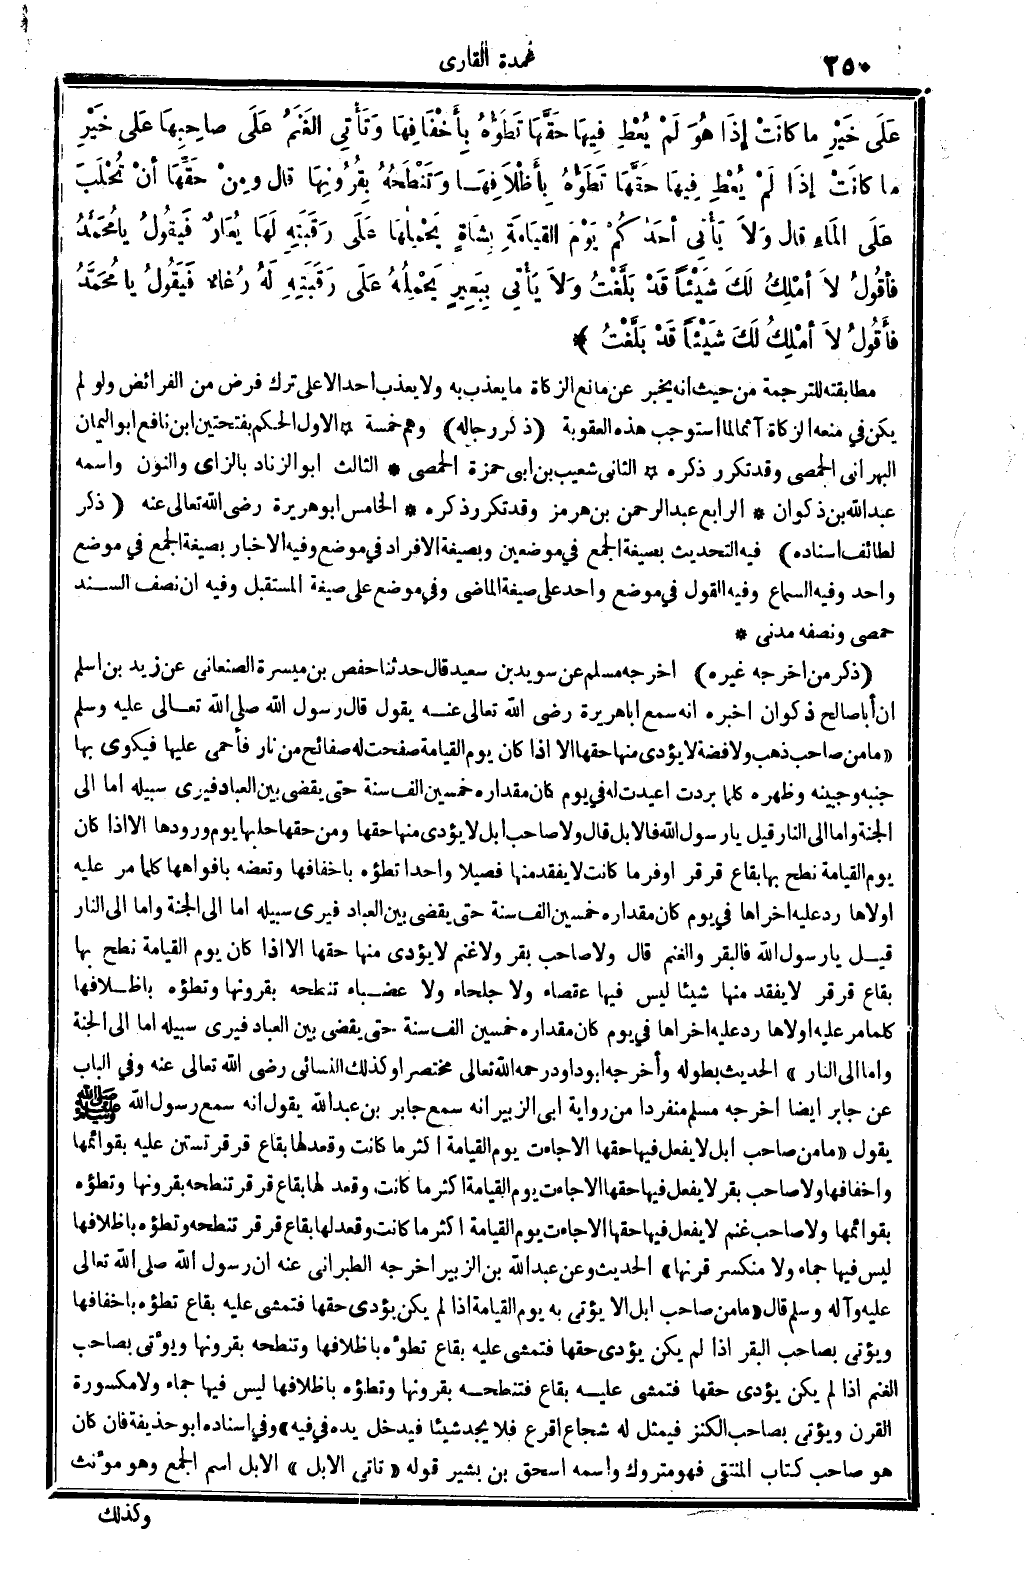 ٢٥٠ عمدة القارى
عَلَى خَيْرِ ما كانَتْ إذَا هُوَ لَمْ يُعْطِ فِيهَا حَقَّهَا تَطَؤُهُ بِأَخْفَافِهَا وَتَأْتِي الغَنَمُ عَلَى صاحِبِهَا عَلَى خَيْرِ
ما كانَتْ إذَا لَمْ يُعْطِ فِيهَا حَقَّهَا تَطَؤُهُ بِأَظْلاَفِهَا وَتَنْطَحُهُ بِقُرُونِهَا قال ومِنْ حَقِّهَا أنْ تُحْلَبَ
عَلَى المَاءِ قال وَلاَ يَأْتِي أحَدُكُمْ يَوْمَ القِيَامَةِ بِشَاةٍ يَحْمِلُهَا عَلَى رَقَبَتِهِ لَهَا يُعَارٌ فَيَقُولُ يا مُحَمَّدُ
فأقُولُ لاَ أمْلِكُ لَكَ شَيْئاً قَدْ بَلَّغْتُ وَلاَ يَأْتِي بِبَعِيرٍ يَحْمِلُهُ عَلَى رَقَبَتِهِ لَهُ رُغاءٌ فَيَقُولُ يا مُحَمَّدُ
فأَقُولُ لاَ أمْلِكُ لَكَ شَيْئاً قَدْ بَلَّغْتُ ﴾
مطابقته للترجمة من حيث انه يخبر عن مانع الزكاة ما يعذب به ولا يعذب احد الا على ترك فرض من الفرائض ولو لم
يكن في منعه الزكاة آثما لما استوجب هذه العقوبة (ذكر رجاله) وهم خمسة * الاول الحكم بفتحتين ابن نافع ابو اليمان
البهرانى الحمصى وقد تكرر ذكره * الثانى شعيب بن ابى حمزة الحمصى * الثالث ابو الزناد بالزاى والنون واسمه
عبد الله بن ذكوان * الرابع عبد الرحمن بن هرمز وقد تكرر ذكره * الخامس ابو هريرة رضى الله تعالى عنه (ذكر
لطائف اسناده) فيه التحديث بصيغة الجمع في موضعين وبصيغة الافراد في موضع وفيه الاخبار بصيغة الجمع في موضع
واحد وفيه السماع وفيه القول في موضع واحد على صيغة الماضى وفي موضع على صيغة المستقبل وفيه ان نصف السند
حمصى ونصفه مدنى *
(ذكر من اخرجه غيره) اخرجه مسلم عن سويد بن سعيد قال حدثنا حفص بن ميسرة الصنعانى عن زيد بن اسلم
ان أبا صالح ذكوان اخبره انه سمع ابا هريرة رضى الله تعالى عنه يقول قال رسول الله صلى الله تعالى عليه وسلم
«مامن صاحب ذهب ولا فضة لا يؤدى منها حقها الا اذا كان يوم القيامة صفحت له صفائح من نار فأحمى عليها فيكوى بها
جنبه وجبينه وظهره كلما بردت اعيدت له في يوم كان مقداره خمسين الف سنة حتى يقضى بين العباد فيرى سبيله اما الى
الجنة واما الى النار قيل يارسول الله فالابل قال ولا صاحب ابل لا يؤدى منها حقها ومن حقها حلبها يوم ورودها الا اذا كان
يوم القيامة نطح بها بقاع قرقر اوفر ما كانت لا يفقد منها فصيلا واحدا تطؤه باخفافها وتعضه بافواهها كلما مر عليه
اولاها رد عليه اخراها في يوم كان مقداره خمسين الف سنة حتى يقضى بين العباد فيرى سبيله اما الى الجنة واما الى النار
قيل يارسول الله فالبقر والغنم قال ولا صاحب بقر ولا غنم لا يؤدى منها حقها الا اذا كان يوم القيامة نطح بها
بقاع قرقر لا يفقد منها شيئا ليس فيها عقصاء ولا جلحاء ولا عضباء تنطحه بقرونها وتطؤه باظلافها
كلما مر عليه اولاها رد عليه اخراها في يوم كان مقداره خمسين الف سنة حتى يقضى بين العباد فيرى سبيله اما الى الجنة
واما الى النار» الحديث بطوله وأخرجه ابو داود رحمه الله تعالى مختصرا وكذلك النسائى رضى الله تعالى عنه وفي الباب
عن جابر ايضا اخرجه مسلم منفردا من رواية ابى الزبير انه سمع جابر بن عبد الله يقول انه سمع رسول الله ﷺ
يقول «مامن صاحب ابل لا يفعل فيها حقها الا جاءت يوم القيامة اكثر ما كانت وقعد لها بقاع قرقر تستن عليه بقوائمها
واخفافها ولا صاحب بقر لا يفعل فيها حقها الا جاءت يوم القيامة اكثر ما كانت وقعد لها بقاع قرقر تنطحه بقرونها وتطؤه
بقوائمها ولا صاحب غنم لا يفعل فيها حقها الا جاءت يوم القيامة اكثر ما كانت وقعد لها بقاع قرقر تنطحه وتطؤه باظلافها
ليس فيها جماء ولا منكسر قرنها» الحديث وعن عبد الله بن الزبير اخرجه الطبرانى عنه ان رسول الله صلى الله تعالى
عليه وآله وسلم قال «مامن صاحب ابل الا يؤتى به يوم القيامة اذا لم يكن يؤدى حقها فتمشى عليه بقاع تطؤه باخفافها
ويؤتى بصاحب البقر اذا لم يكن يؤدى حقها فتمشى عليه بقاع تطوٴه باظلافها وتنطحه بقرونها ويوٴتى بصاحب
الغنم اذا لم يكن يؤدى حقها فتمشى عليه بقاع فتنطحه بقرونها وتطؤه باظلافها ليس فيها جماء ولا مكسورة
القرن ويؤتى بصاحب الكنز فيمثل له شجاع اقرع فلا يجد شيئا فيدخل يده في فيه» وفي اسناده ابو حذيفة فان كان
هو صاحب كتاب المنتقى فهو متروك واسمه اسحق بن بشير قوله «تاتى الابل» الابل اسم الجمع وهو موٴنث
وكذلك